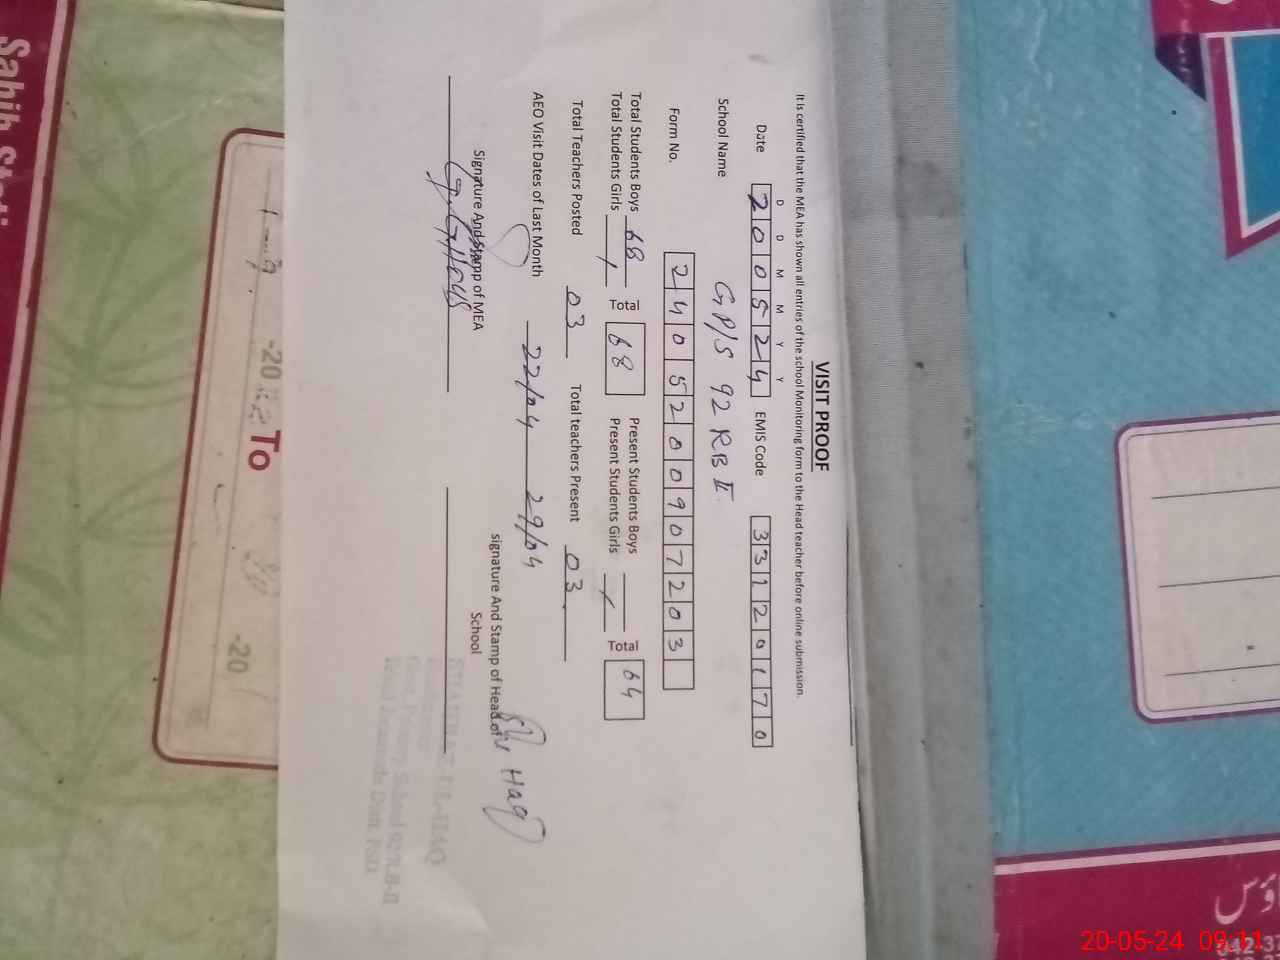 VISIT PROOF
It is certified that the MEA has shown all entries of the school Monitoring form to the Head teacher before online submission.
D D M M Y Y
Date 200524 EMIS Code 33120170
School Name GP/S 92 RB II
Form No. 2405200907203
Total Students Boys 68 Total 68 Present Students Boys Total 64
Total Students Girls / Present Students Girls /
Total Teachers Posted 03 Total teachers Present 03
AEO Visit Dates of Last Month 22/04 29/04
Signature And Stamp of MEA signature And Stamp of Head of School
Haq
Govt. Primary School 92/R.B-II
To
-20
-20
Sahib
ؤس
20-05-24 09:11